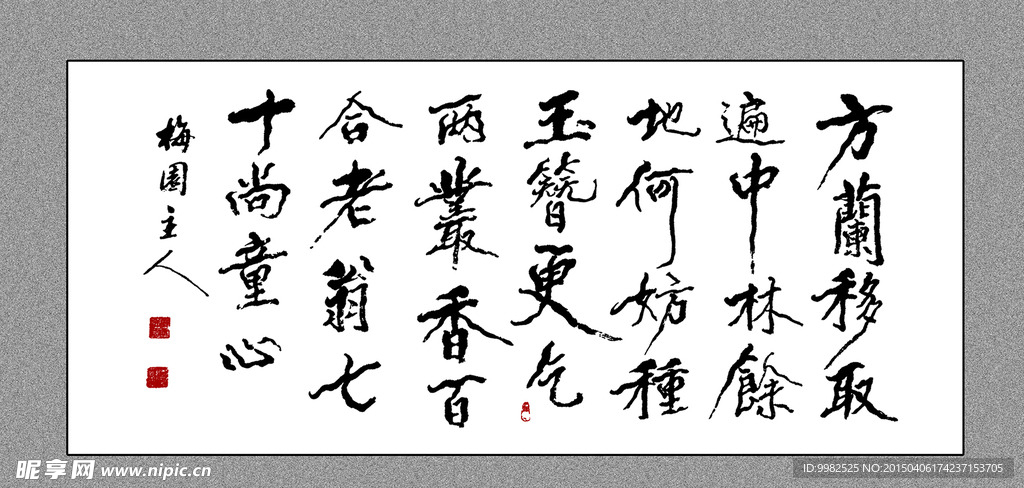 方蘭移取
遍中林餘
地何妨種
玉簪更乞
兩叢香百
合老翁七
十尚童心
梅園主人
昵享网 www.nipic.cn
ID:9982525 NO:20150406174237153705